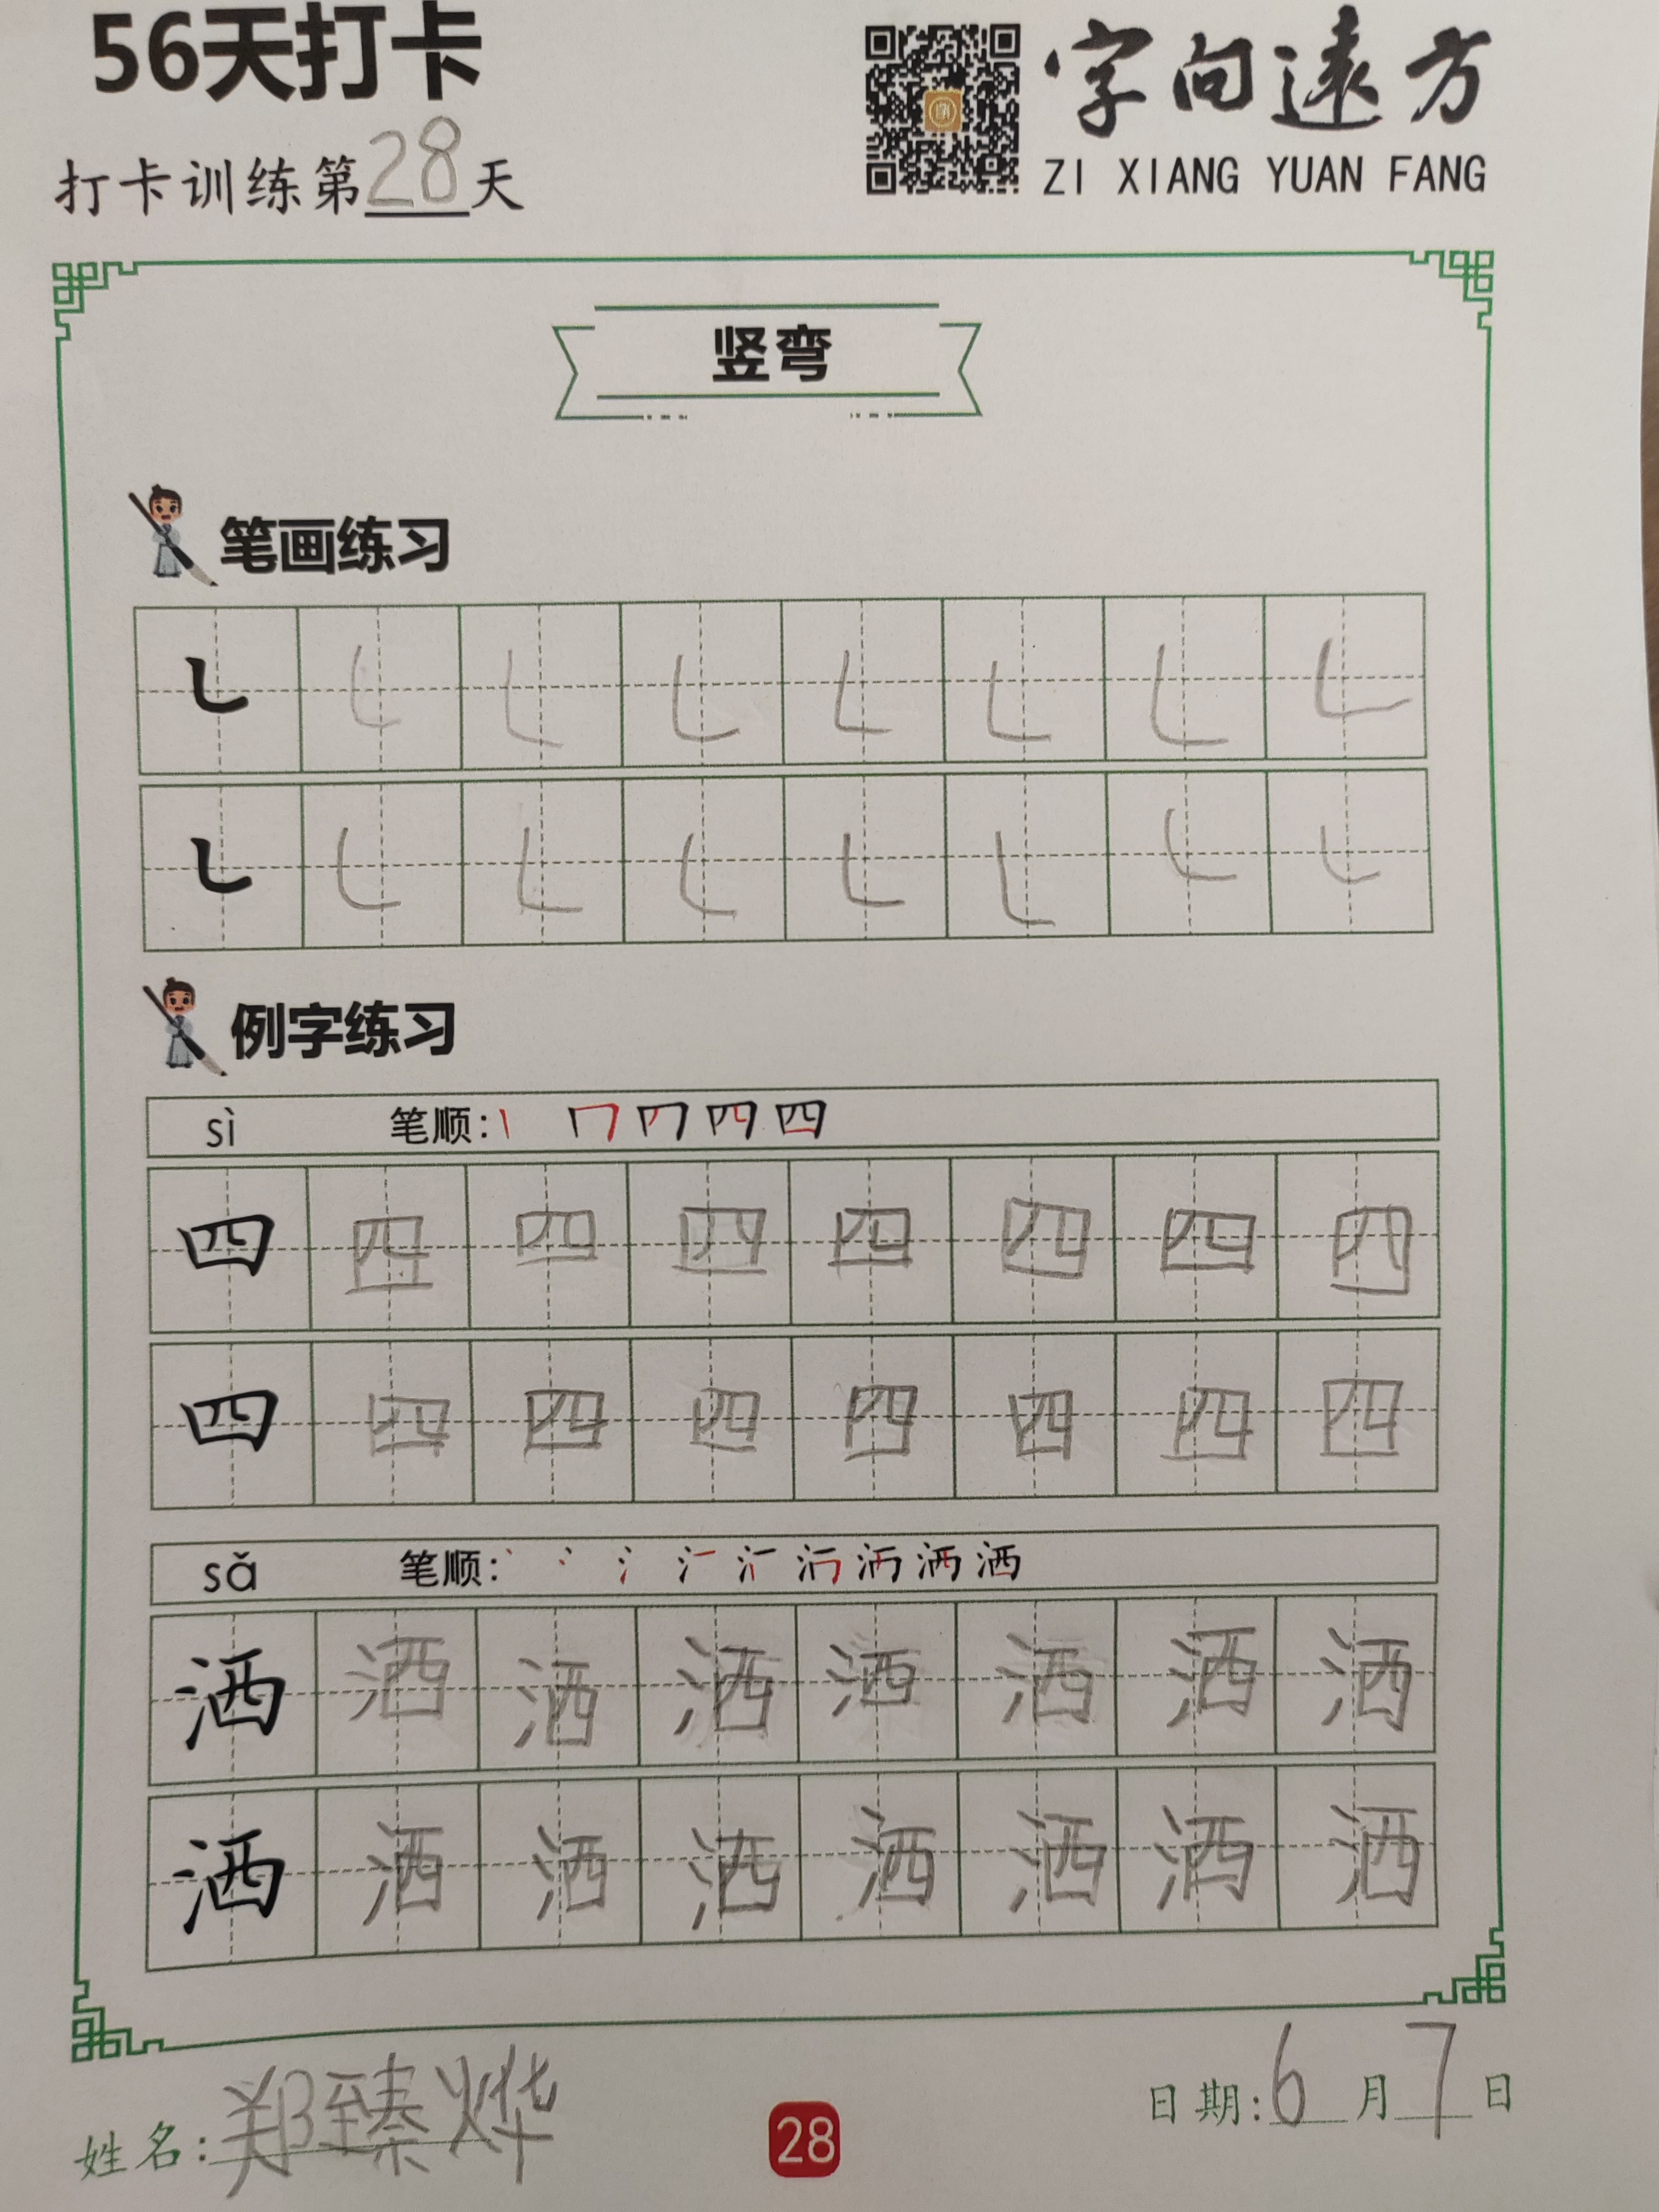 56天打卡
字向遠方
ZI XIANG YUAN FANG
打卡训练第28天
竖弯
笔画练习
㇄ ㇄ ㇄ ㇄ ㇄ ㇄ ㇄ ㇄
㇄ ㇄ ㇄ ㇄ ㇄ ㇄ ㇄ ㇄
例字练习
sì 笔顺: 四
四 四 四 四 四 四 四 四
四 四 四 四 四 四 四 四
sǎ 笔顺: 洒
洒 洒 洒 洒 洒 洒 洒 洒
洒 洒 洒 洒 洒 洒 洒 洒
姓名: 郑臻烨
28
日期: 6月7日